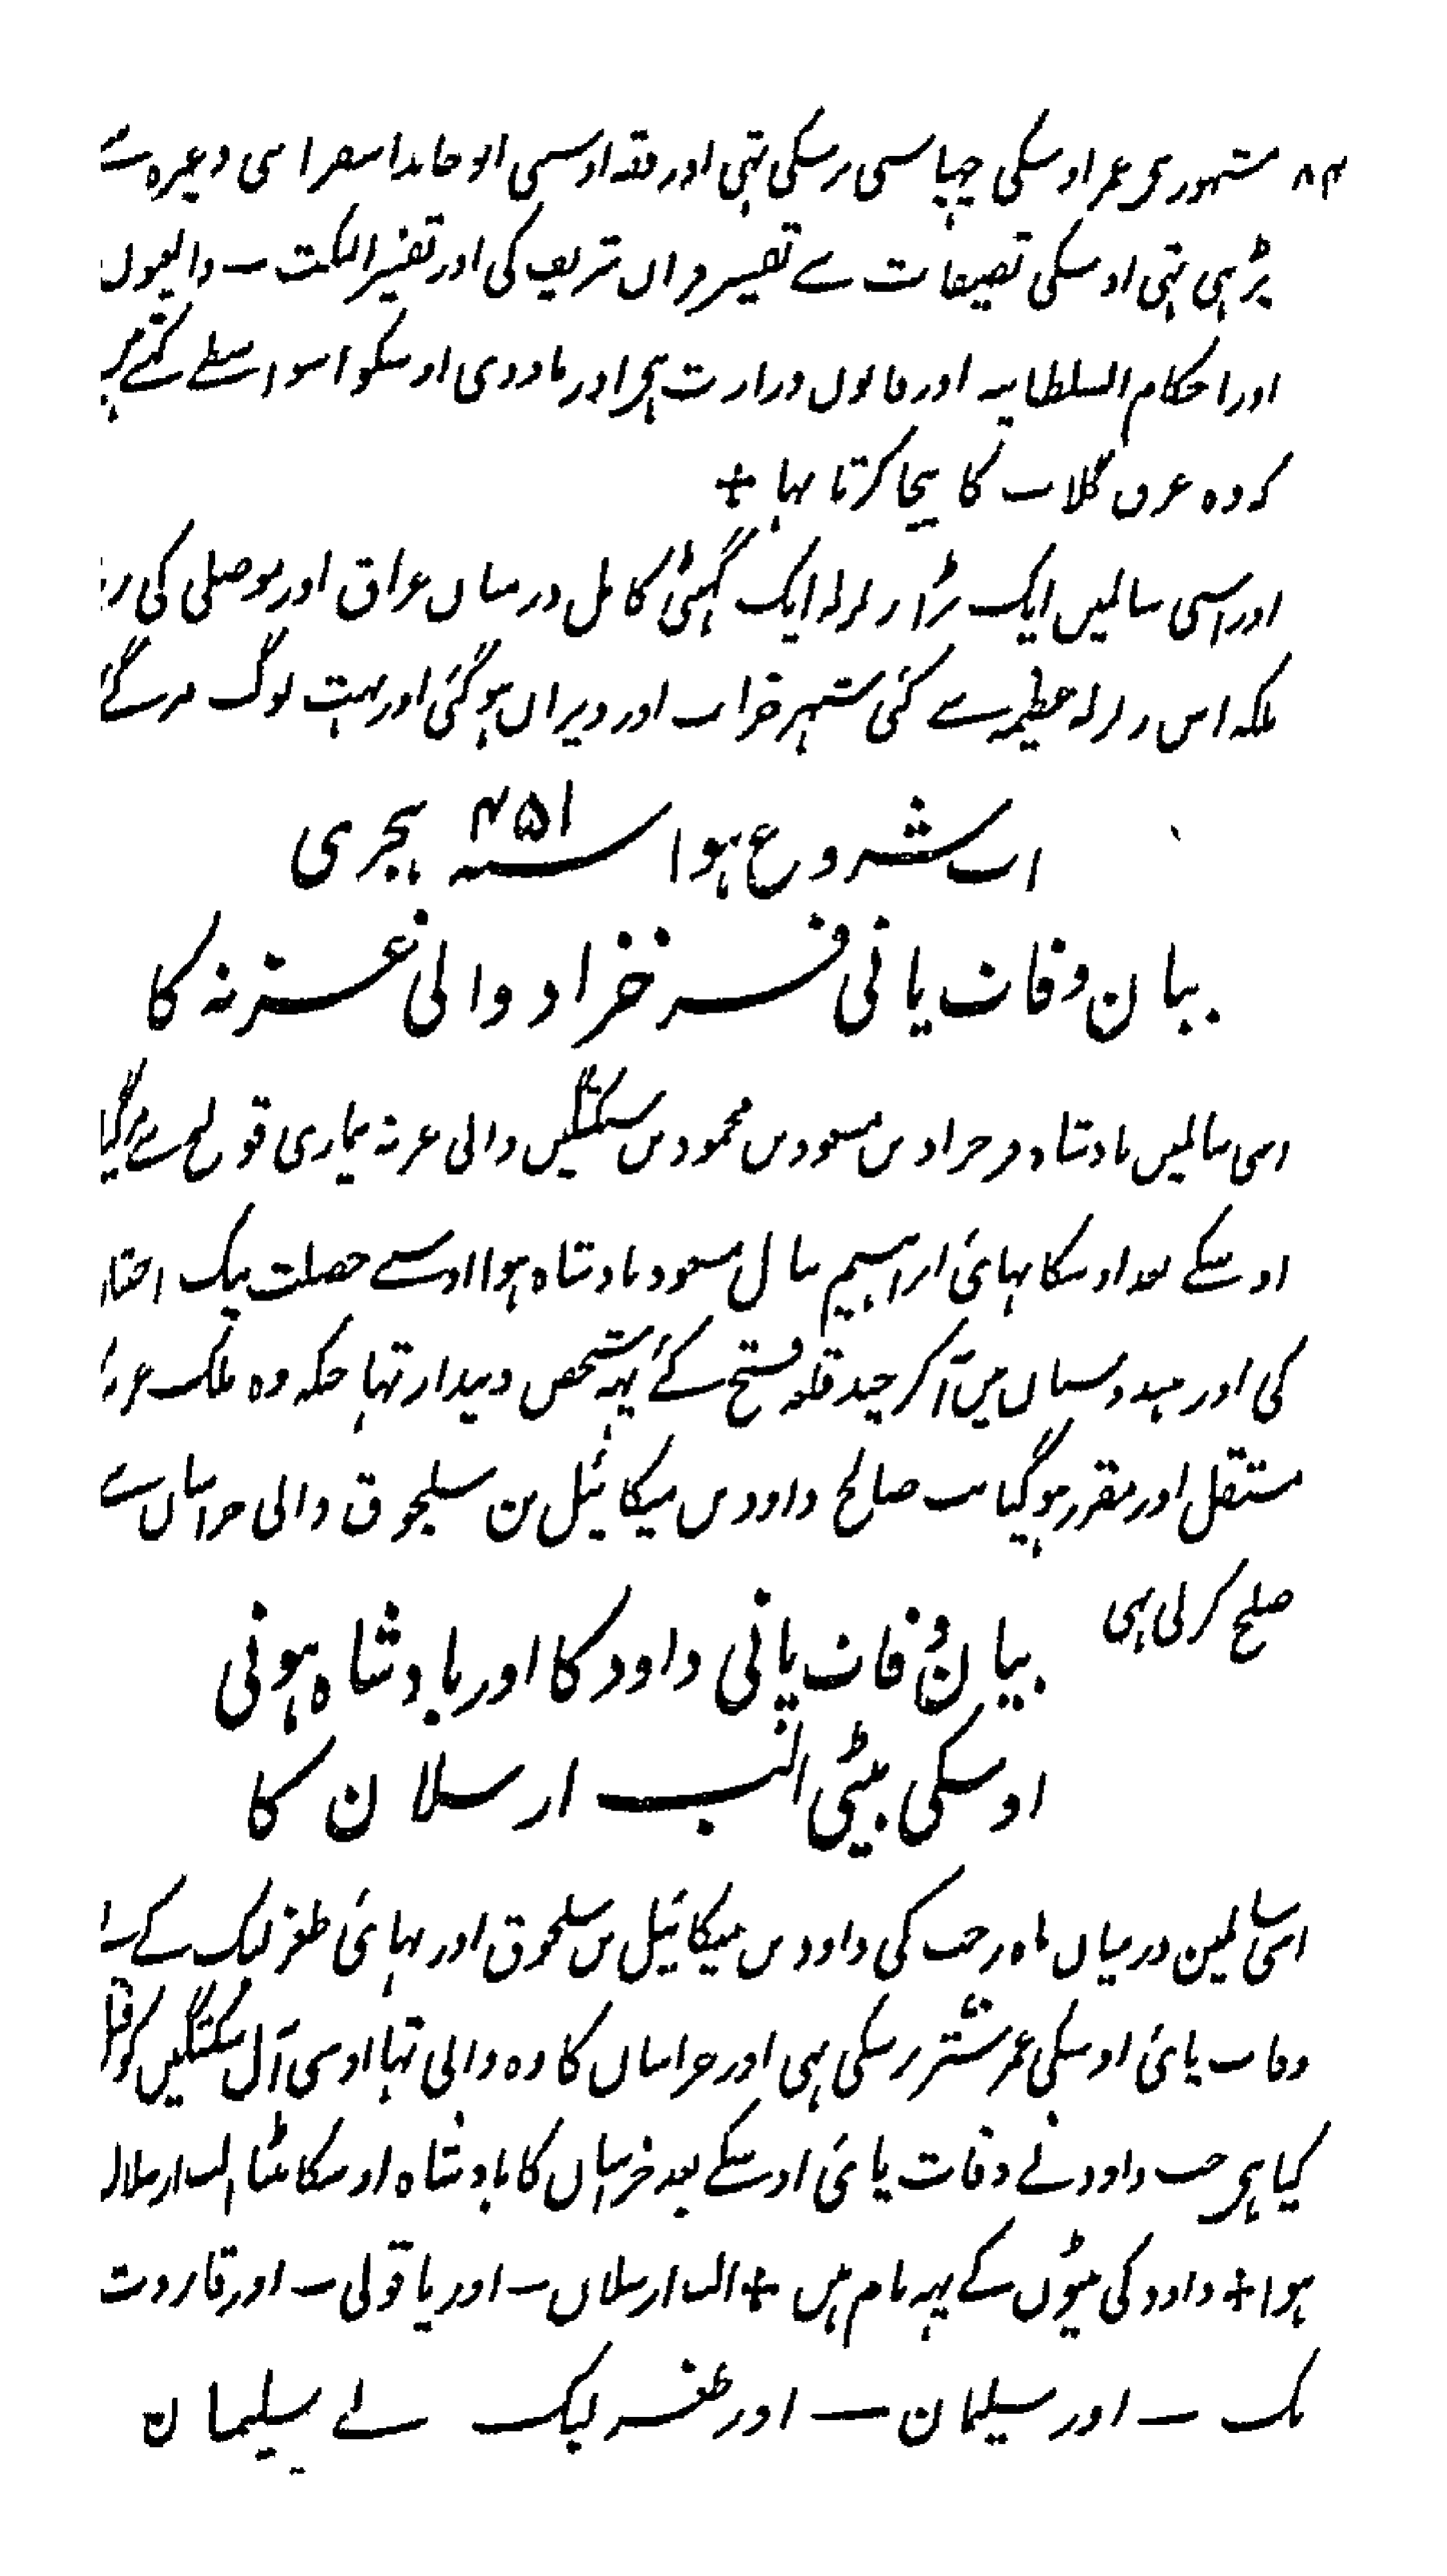 ۸۴ مشہور ہی عمر اوسکی چہیاسی برسکی تہی اور فقہ اوسی ابو حامد اسفراینی وغیرہ سے
پڑہی تہی اوسکی تصنیفات سے تفسیر قران شریف کی اور تفسیر النکت — والعیون
اور احکام السلطانیہ اور قانون وزارت ہی اور ماوردی اوسکو اسواسطے کہتے ہیں
کہ وہ عرق گلاب کا بیچا کرتا تہا ÷
اور اسی سالمیں ایک بڑا زلزلہ ایک گہنٹی کامل درمیان عراق اور موصلی کی رہا
بلکہ اس زلزلہ عظیمہ سے کئی شہر خراب اور ویران ہوگئی اور بہت لوگ مرگئے
اب شروع ہوا سنہ ۴۵۱ ہجری
بیان وفات پانی فرخزاد والی غزنہ کا
اسی سالمیں بادشاہ فرخزاد بن مسعود بن محمود بن سبکتگین والی غزنہ بیماری قولنج سے مرگیا
اوسکے بعد اوسکا بہائی ابراہیم بن مسعود بادشاہ ہوا اوسے خصلت نیک اختیار
کی اور ہندوستان میں آکر چند قلعہ فتح کئے یہہ شخص دیندار تہا جبکہ وہ ملک غزنہ
مستقل اور مقرر ہوگیا تب صالح داود بن میکائیل بن سلجوق والی خراسان سے
صلح کرلی ہی
بیان وفات پانی داود کا اور بادشاہ ہونی
اوسکی بیٹی الب ارسلان کا
اسی سالمین درمیان ماہ رجب کی داود بن میکائیل بن سلجوق اور بہائی طغرلبک کے نے
وفات پائی اوسکی عمر ستر برسکی ہی اور خراسان کا وہ والی تہا اوسی آل سبکتگین کو
کیا ہی جب داود نے وفات پائی اوسکے بعد خراسان کا بادشاہ اوسکا بیٹا الب ارسلان
ہوا ÷ داود کی بیٹوں کے یہہ نام ہیں ÷ الب ارسلان — اور یاقوتی — اور قاروت
بک — اور سلیمان — اور طغرلبک نے سلیمان